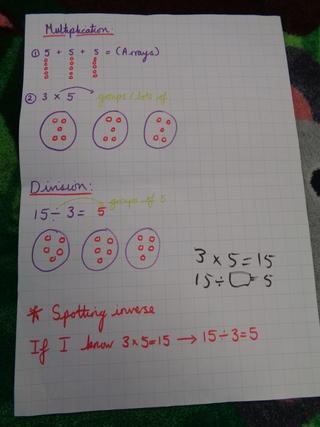 Multiplication:
① 5 + 5 + 5 = (Arrays)
② 3 × 5 groups/lots of
Division:
15 ÷ 3 = 5 groups of 5
3 × 5 = 15
15 ÷ □ = 5
* Spotting inverse
If I know 3×5=15 → 15÷3=5